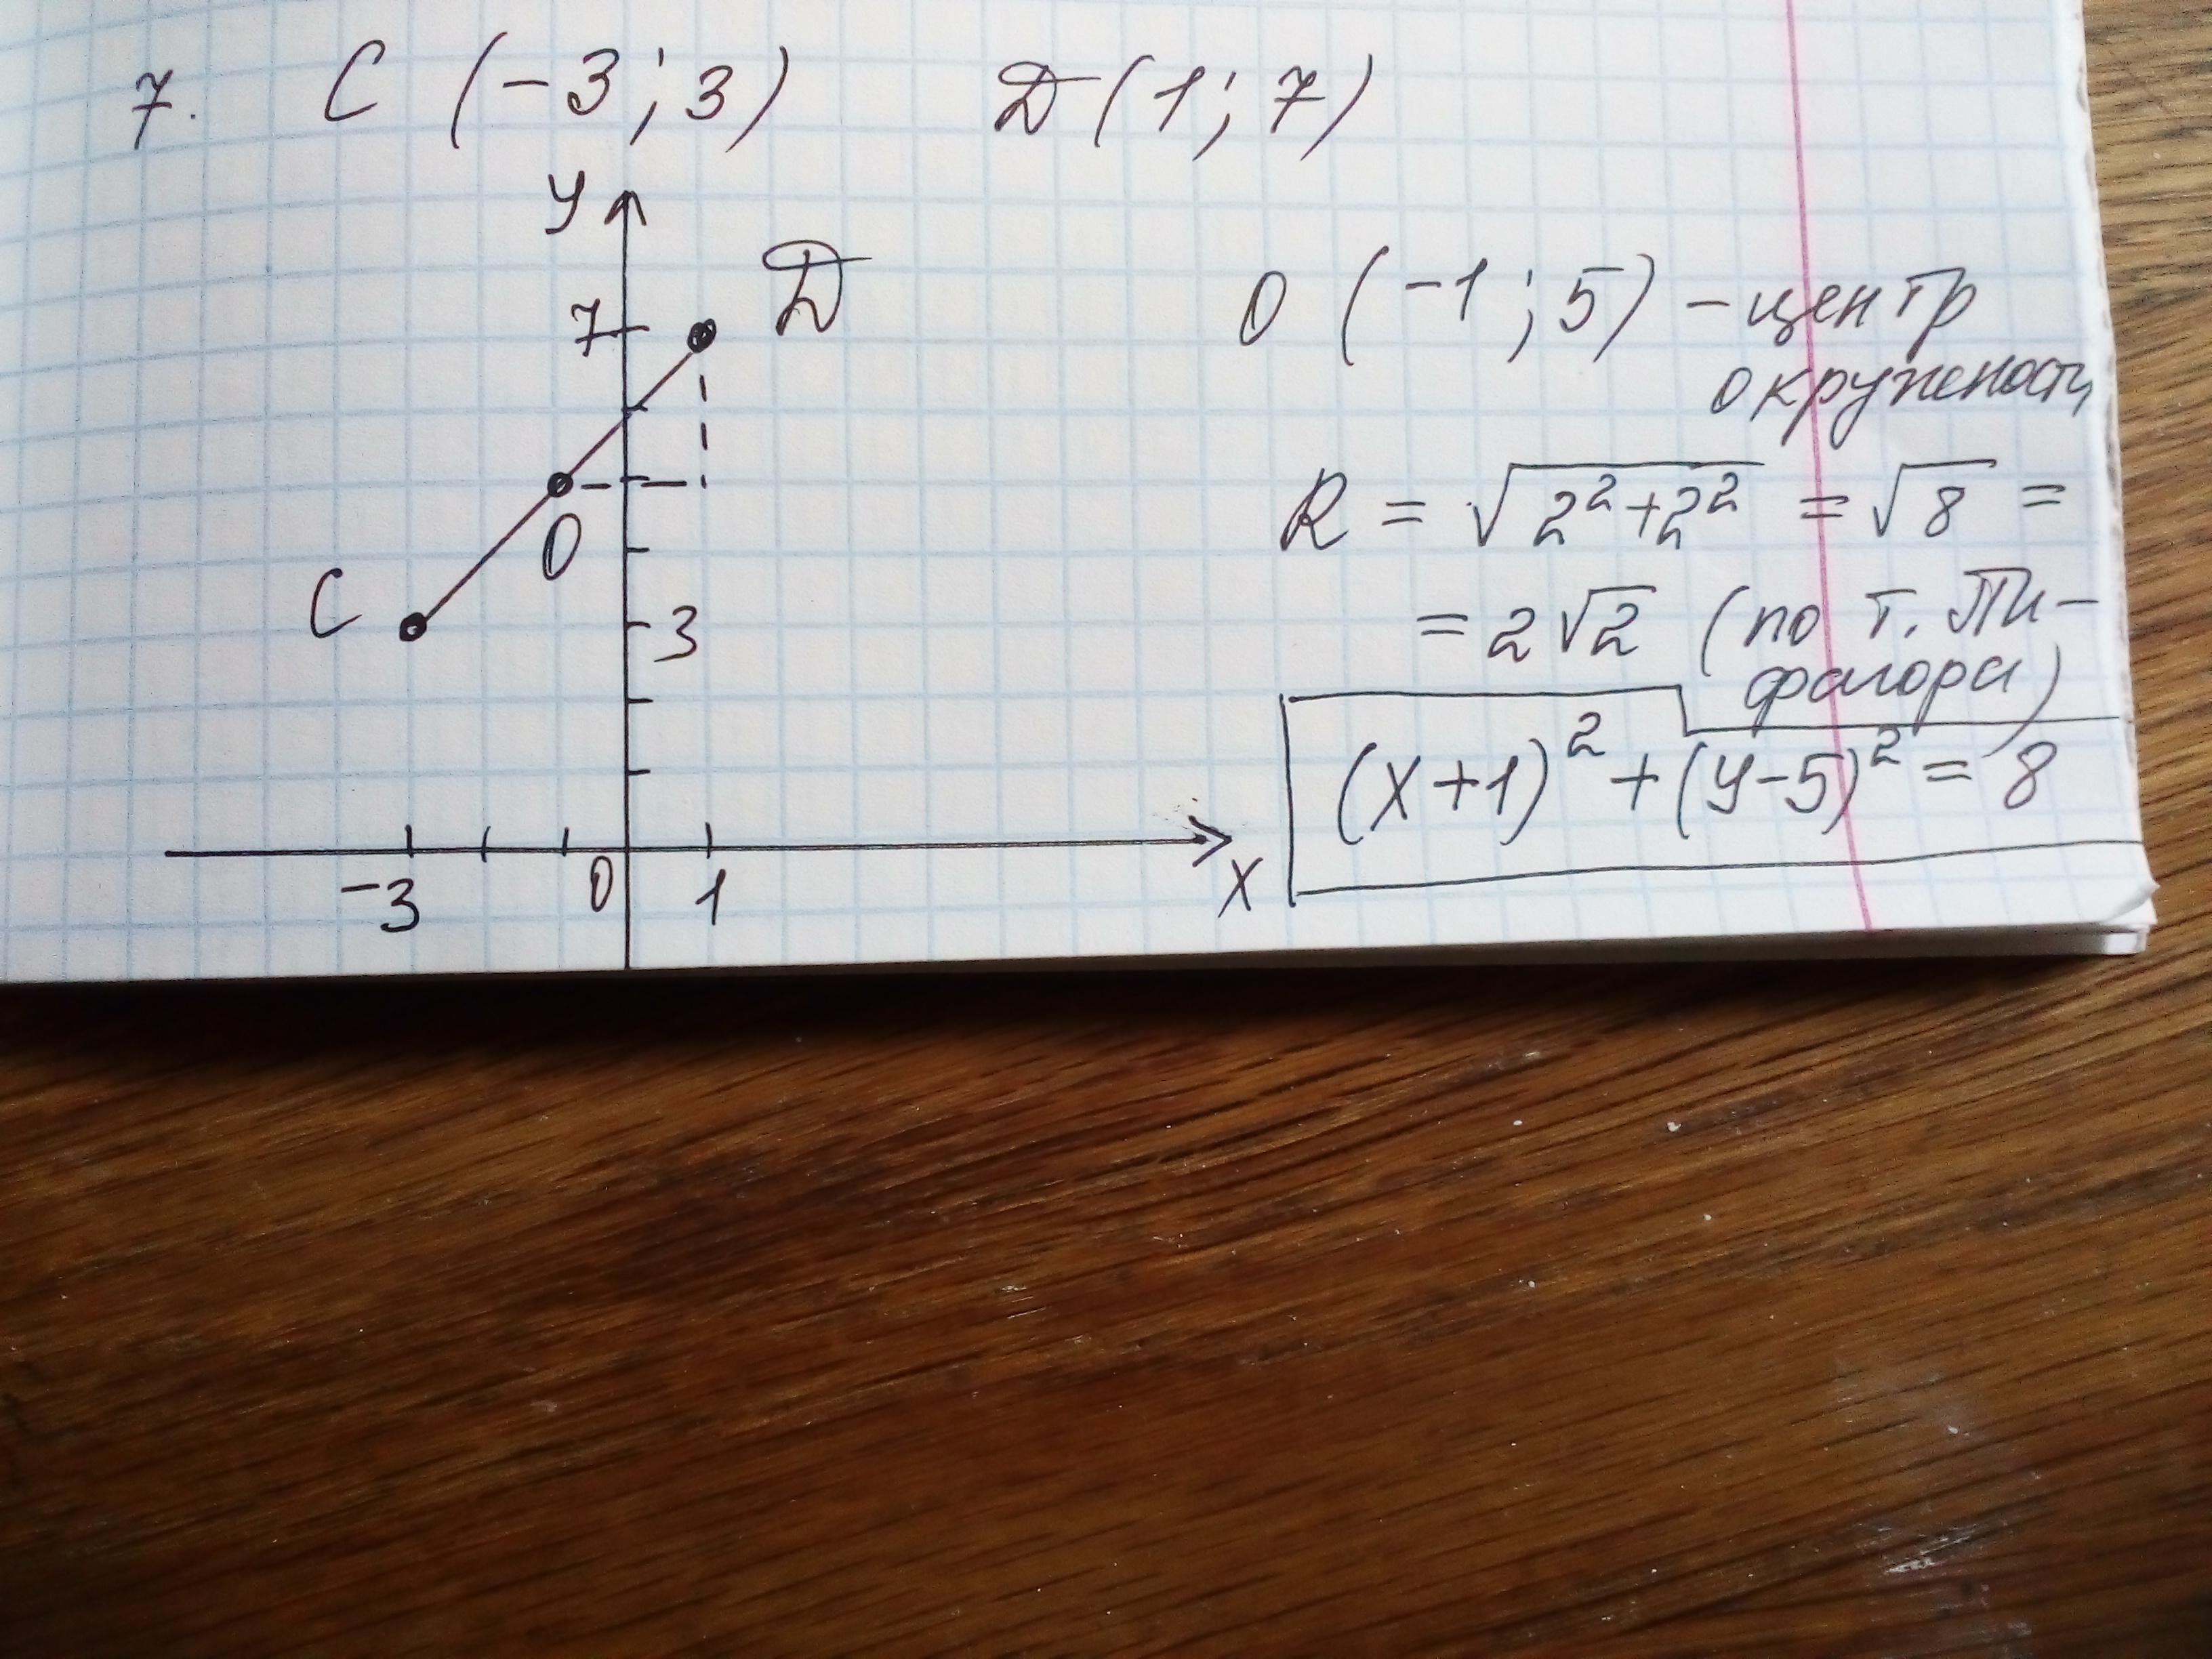 7. C (-3; 3) D (1; 7)
y
D
7
O
C
3
-3 0 1 x
O (-1; 5) - центр
окружености
R = √2²+2² = √8 =
= 2√2 (по т. Пи-
фагора)
(x+1)² + (y-5)² = 8